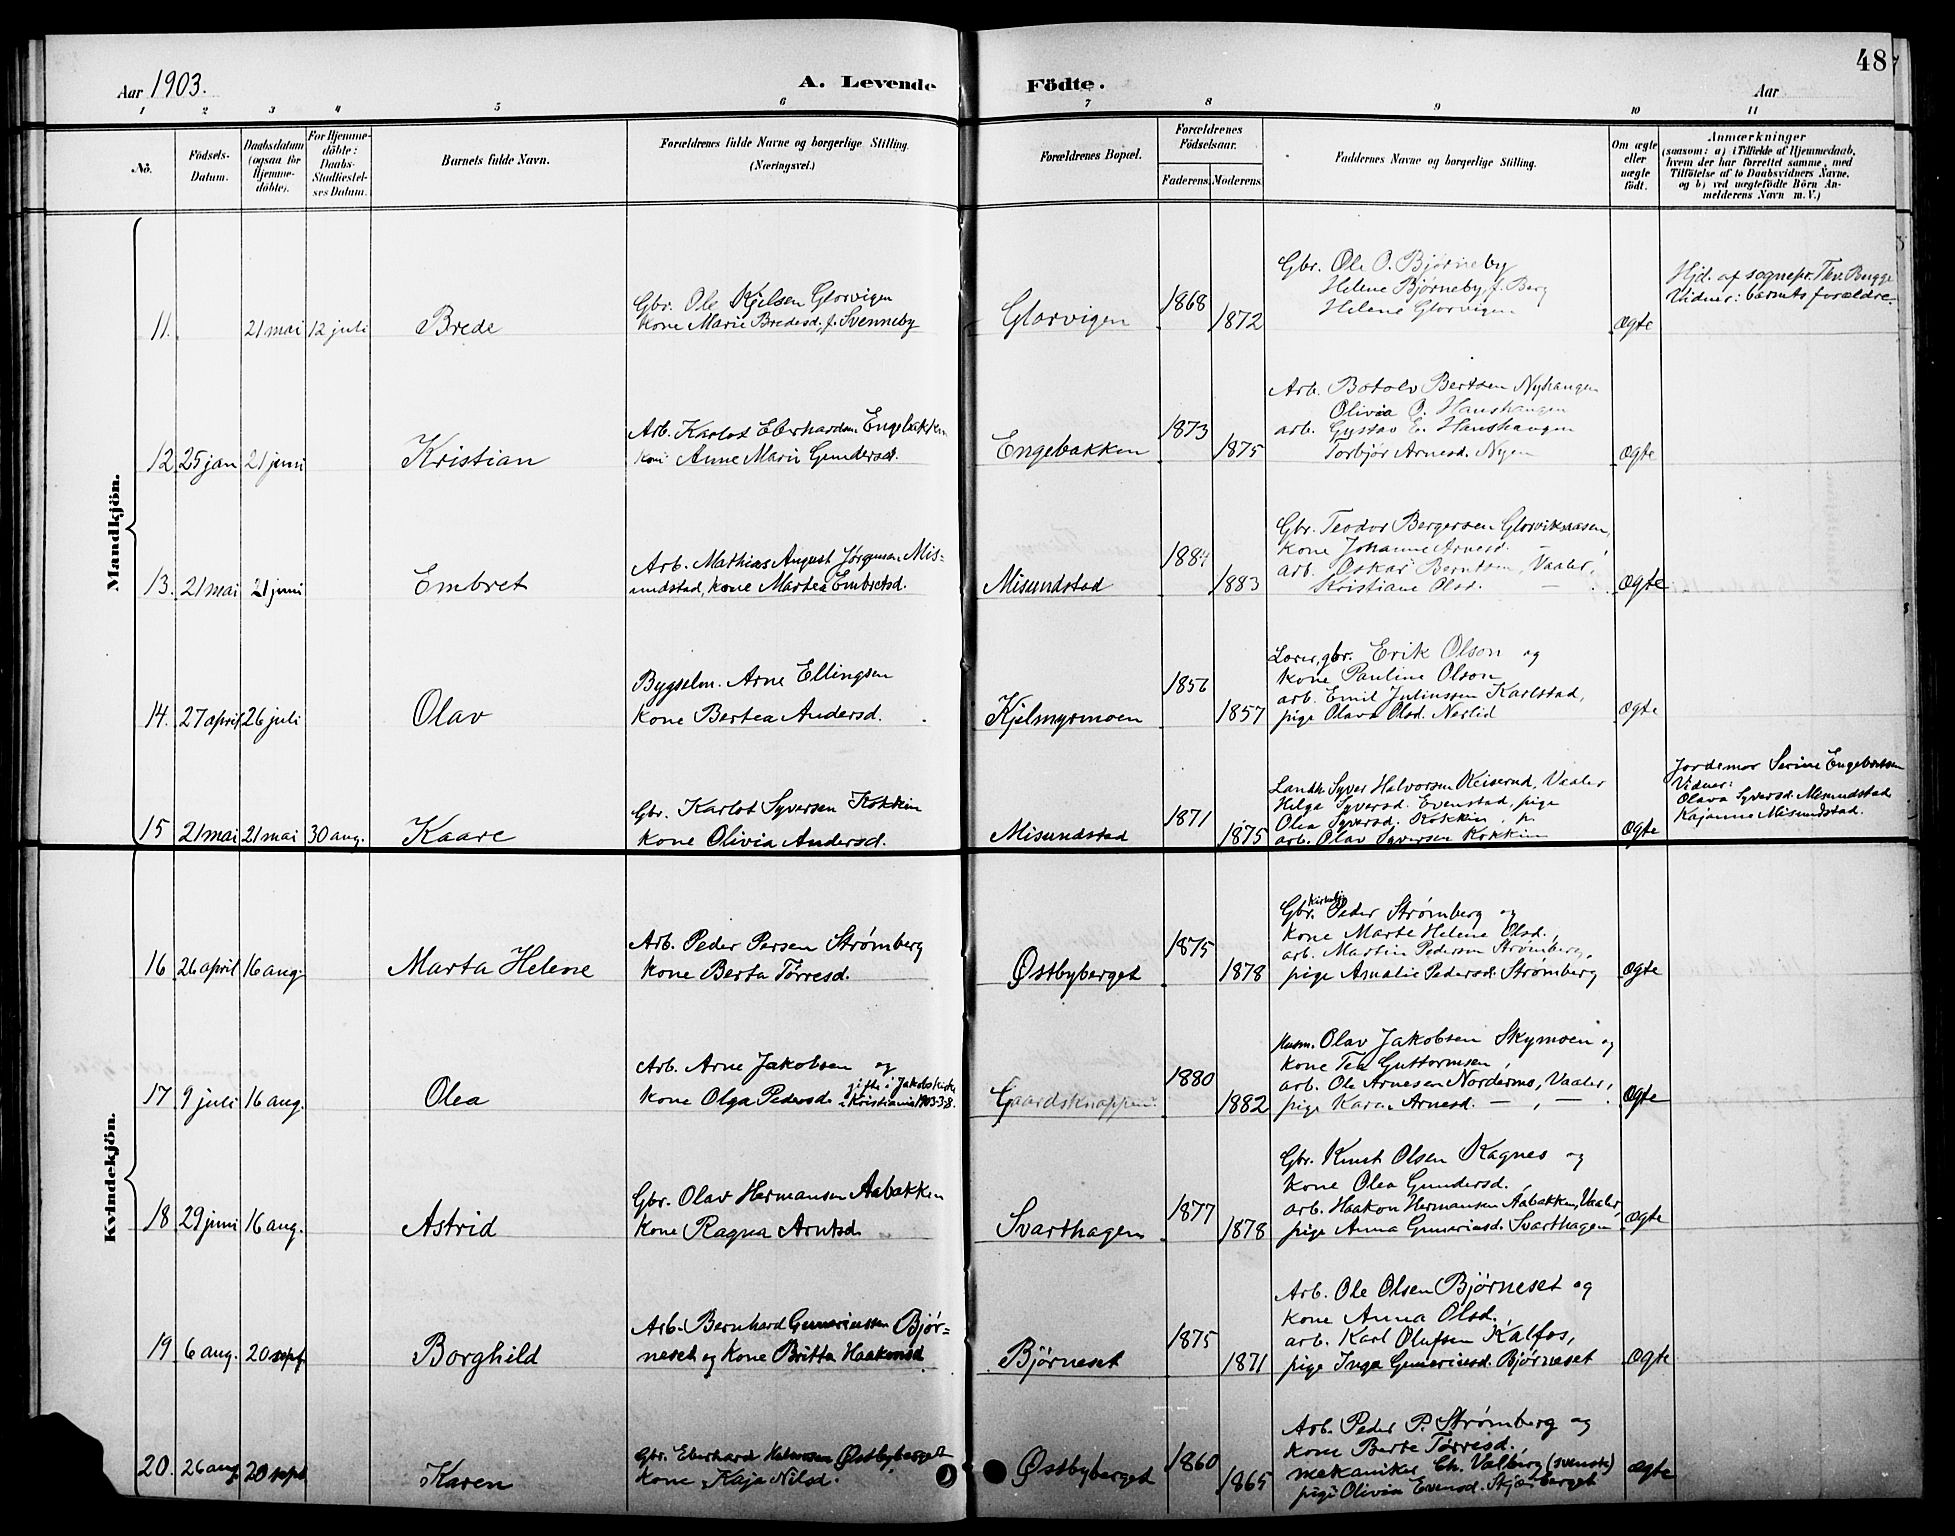 Aar 1903.
A. Levende Födte.
Aar
48
1 2 3 4 5 6 7 8 9 10 11
No.
Födsels-
Datum.
Daabsdatum
(ogsaa for
Hjemme-
döbte).
For Hjemme-
döbte:
Daabs-
Stadfæstel-
ses Datum.
Barnets fulde Navn.
Forældrenes fulde Navne og borgerlige Stilling.
(Næringsvei.)
Forældrenes Bopæl.
Forældrenes
Födselsaar.
Faderens. Moderens.
Faddernes Navne og borgerlige Stilling.
Om ægte
eller
uægte
födt.
Anmærkninger
(saasom: a) i Tilfælde af Hjemmedaab,
hvem der har forrettet samme, med
Tilföielse af to Daabsvidners Navne,
og b) ved uægtefödte Börn An-
melderens Navn m. V.)
Mandkjön.
11. 21 mai 12 juli Brede
Gbr. Ole Kjelsen Glorvigen
Kone Marie Bredesd. f. Svenneby
Glorvigen 1868 1872
Gbr. Ole O. Bjørneby
Helene Bjørneby f. Berg
Helene Glorvigen
ægte
Hjd. af sognepr. Thv. Bugge
Vidner: barnets forældre.
12 25 jan 21 juni Kristian
Arb. Karlot Eberhardsen Engebakken
Kone Anne Marie Gundersd.
Engebakken 1873 1875
Arb. Botolv Bertsen Nyhangen
Olivia O. Hanshaugen
arb. Gustav E. Hanshaugen
Torbjør Arnesd. Nyen
ægte
13. 21 mai 21 juni Embret
Arb. Mathias August Jørgensen Mis-
undstad, kone Martea Embretsd.
Misundstad 1884 1883
Gbr. Teodor Bergersen Glorviksaasen,
Kone Johanne Arnesd. —
arb. Oskar Berntsen, Vaaler,
Kristiane Olsd. — .
ægte
14. 27 april 26 juli Olav
Bygselm. Arne Ellingsen
Kone Bertea Andersd.
Kjelmyrmoen 1856 1857
gbr. Erik Olson og
Kone Pauline Olson
arb. Emil Juliussen Karlstad,
pige Olava Olsd. Nerlid
ægte
15 21 mai 21 mai 30 aug. Kaare
Gbr. Karlot Syversen Kokkin
Kone Olivia Andersd.
Misundstad 1871 1875
Landh. Syver Halvorsen Keiserud, Vaaler
Helga Syversd. Evenstad, pige
Olea Syversd. Kokkin, p.
arb. Olav Syversen Kokkin
ægte
Jordemor Serine Engebretsen
Vidner:
Olava Syversd. Misundstad
Kajanna Misundstad.
Kvindekjön.
16 26 april 16 aug. Marta Helene
Arb. Peder Persen Strømberg
Kone Berta Tørresd.
Østbyberget 1875 1878
Gbr. Peder Strømberg og
Kone Marte Helene Olsd.,
arb. Martin Pedersen Strømberg,
pige Amalie Pedersd. Strømberg
ægte
17 9 juli 16 aug. Olea
Arb. Arne Jakobsen og
Kone Olga Pedersd. gifte i Jakobs kirke
i Kristiania 1903-3-8.
Gaardsknappen 1880 1882
Husm. Olav Jakobsen Skymoen og
Kone Tea Guttormsen,
arb. Ole Arnesen Nordermo, Vaaler,
pige Karen Arnesd. — , — .
ægte
18 29 juni 16 aug. Astrid
Gbr. Olav Hermansen Aabakken
Kone Ragna Arntsd.
Svarthagen 1877 1878
Gbr. Knut Olsen Kagnes og
Kone Olea Gundersd.,
arb. Haakon Hermansen Aabakken, Vaaler,
pige Anna Guneriusd. Svarthagen
ægte
19 6 aug. 20 sept. Borghild
Arb. Bernhard Gunariussen Bjør-
neset og Kone Britta Haakensd
Bjørneset 1875 1871
Arb. Ole Olsen Bjørneset og
Kone Anna Olsd.,
arb. Karl Olufsen Kalfos,
pige Inga Gunariusd. Bjørneset
ægte
20. 26 aug. 20 sept. Karen
Gbr. Eberhard Halvorsen Østbyberget
Kone Kaja Nilsd.
Østbyberget 1860 1865
Arb. Peder P. Strømberg og
Kone Berte Tørresd.,
mekaniker Ch. Valberg (svensk)
pige Olivia Evensd. Skjærberget
ægte